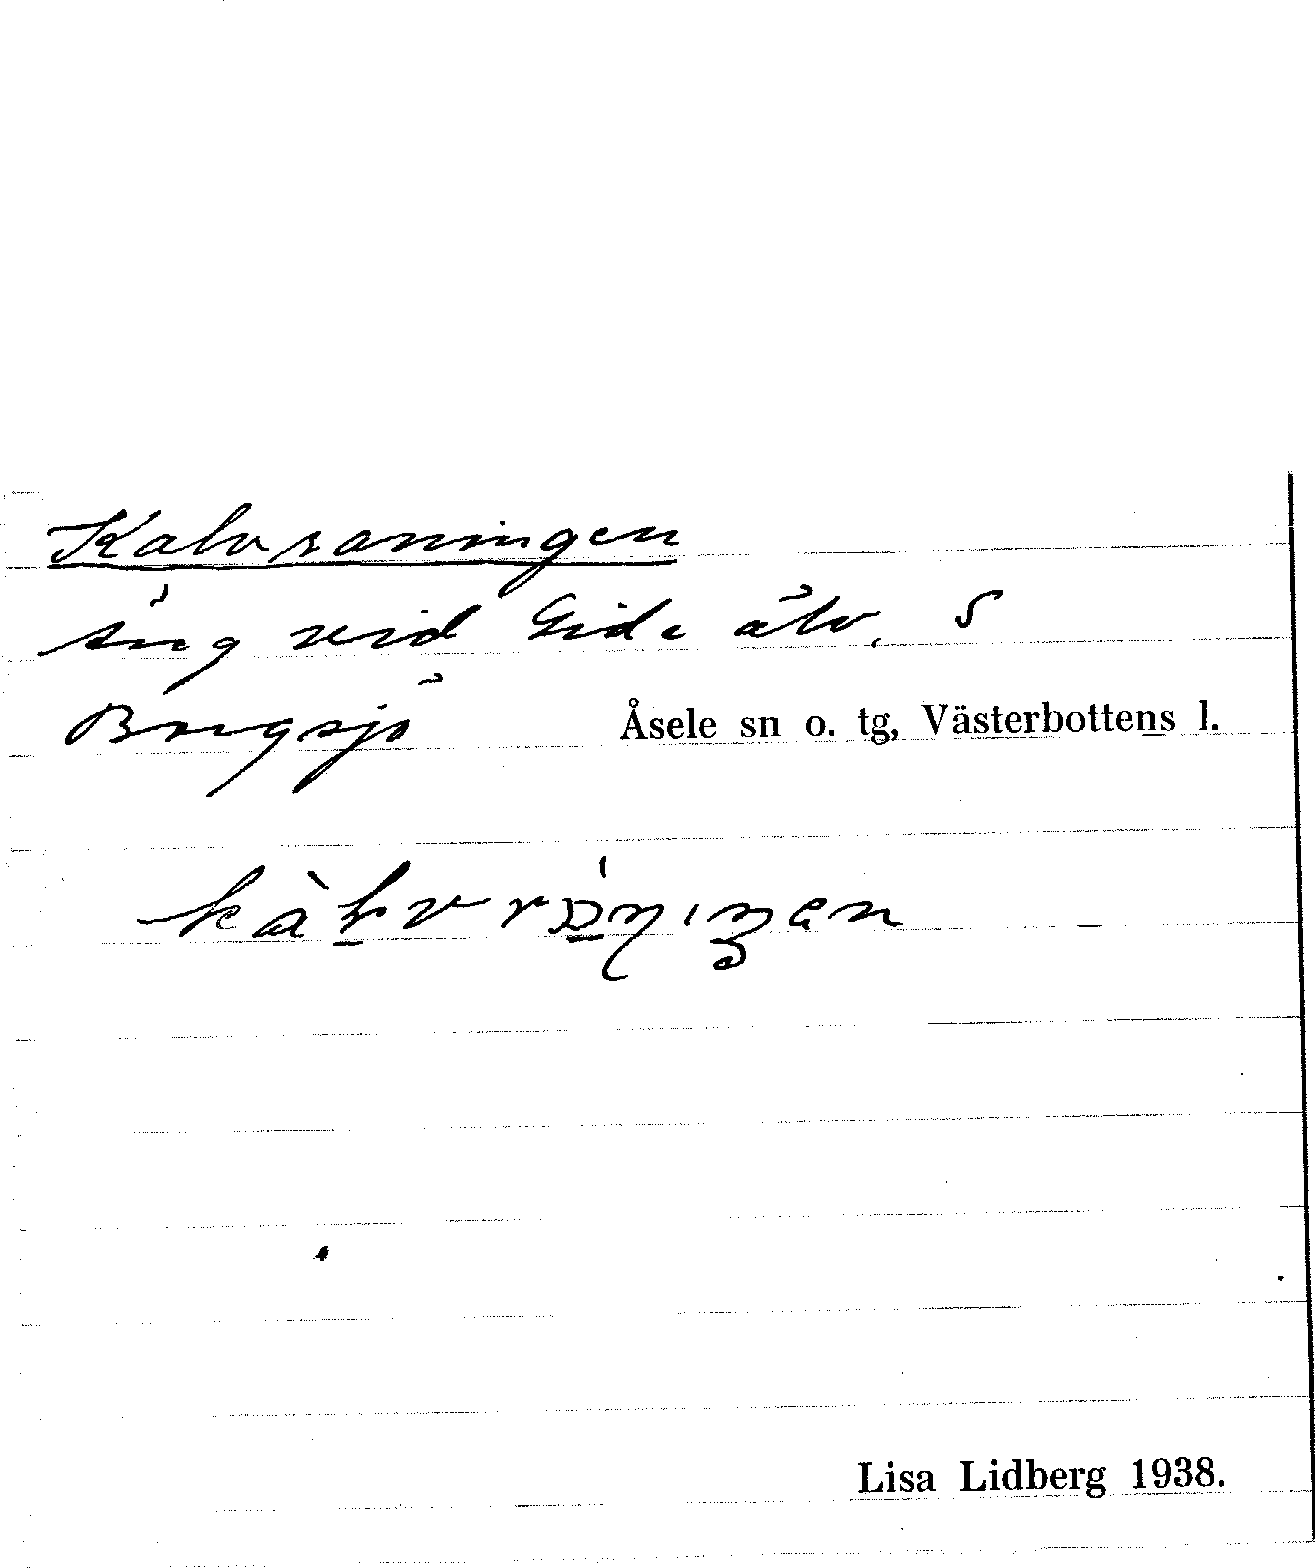 Kalvraningen
äng vid Gide älv, S
Bergsjö Åsele sn o. tg, Västerbottens l.
Lisa Lidberg 1938.